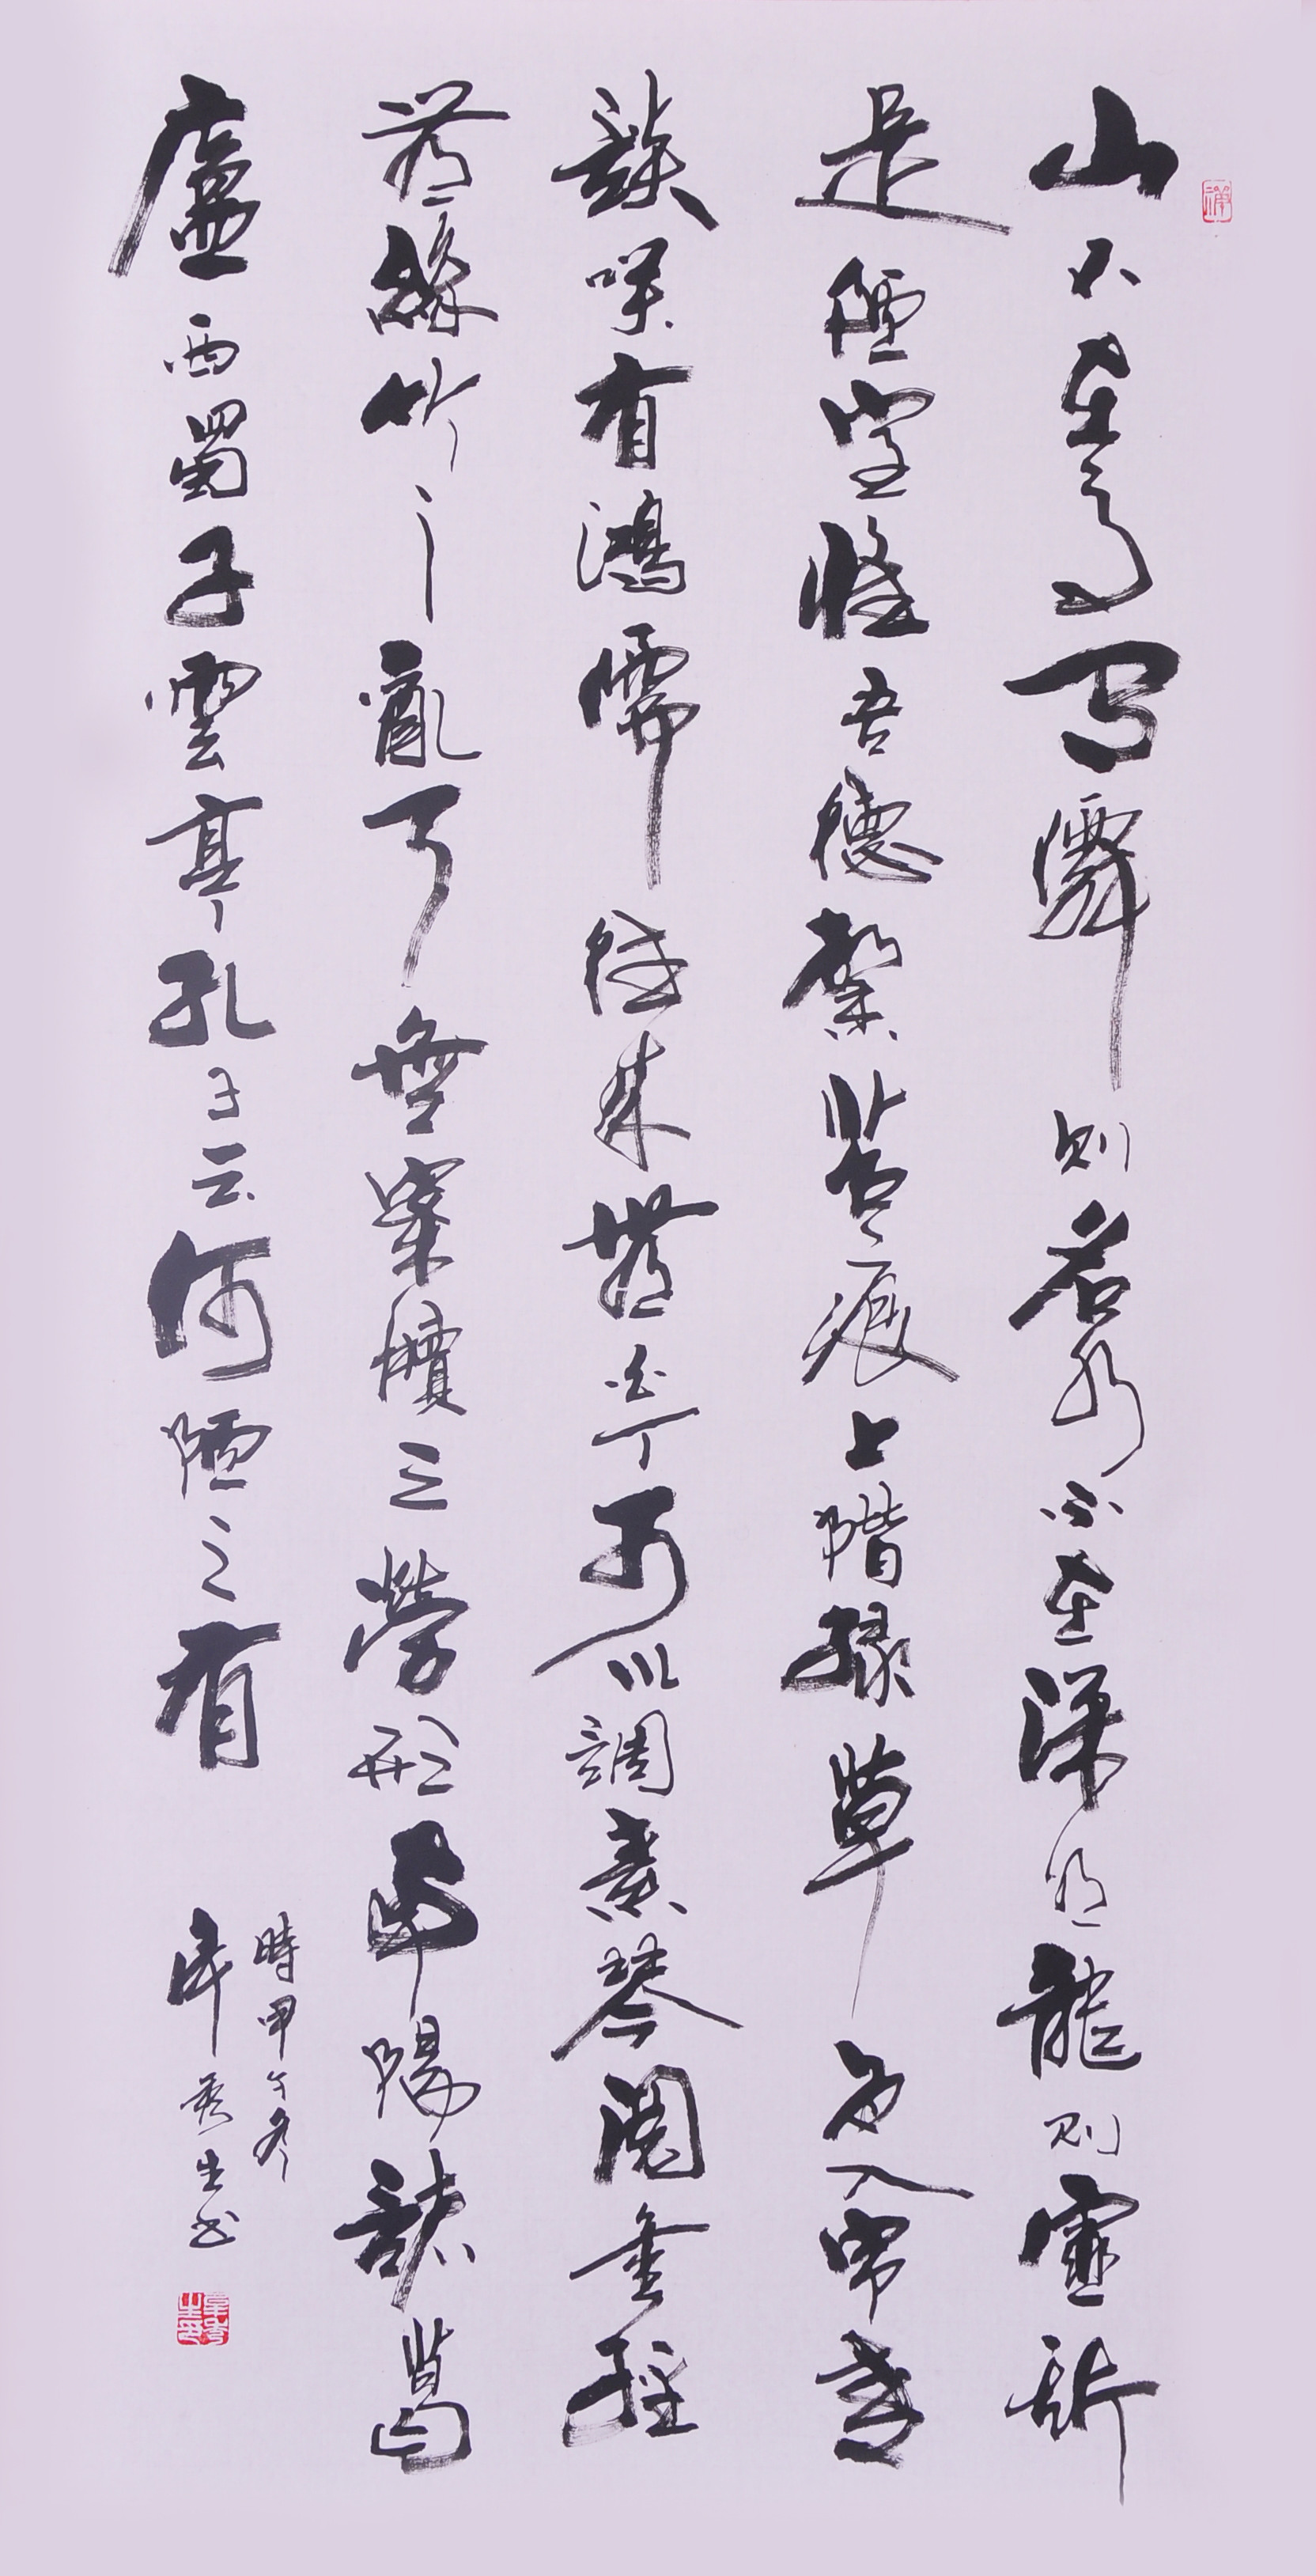 山不在高有僊則名水不在深有龍則靈斯
是陋室惟吾德馨苔痕上階綠草色入帘青
談笑有鴻儒往來無白丁可以調素琴閱金經
無絲竹之亂耳無案牘之勞形南陽諸葛
廬西蜀子雲亭孔子云何陋之有
時甲午冬
生书